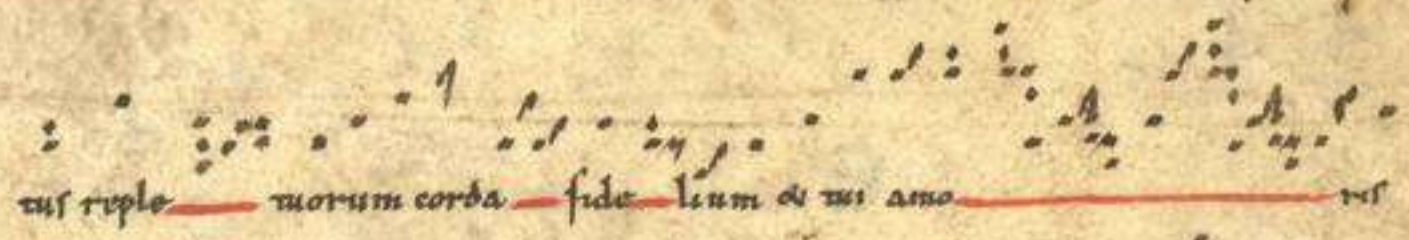 tus reple tuorum corda fide lium & tui amo ris